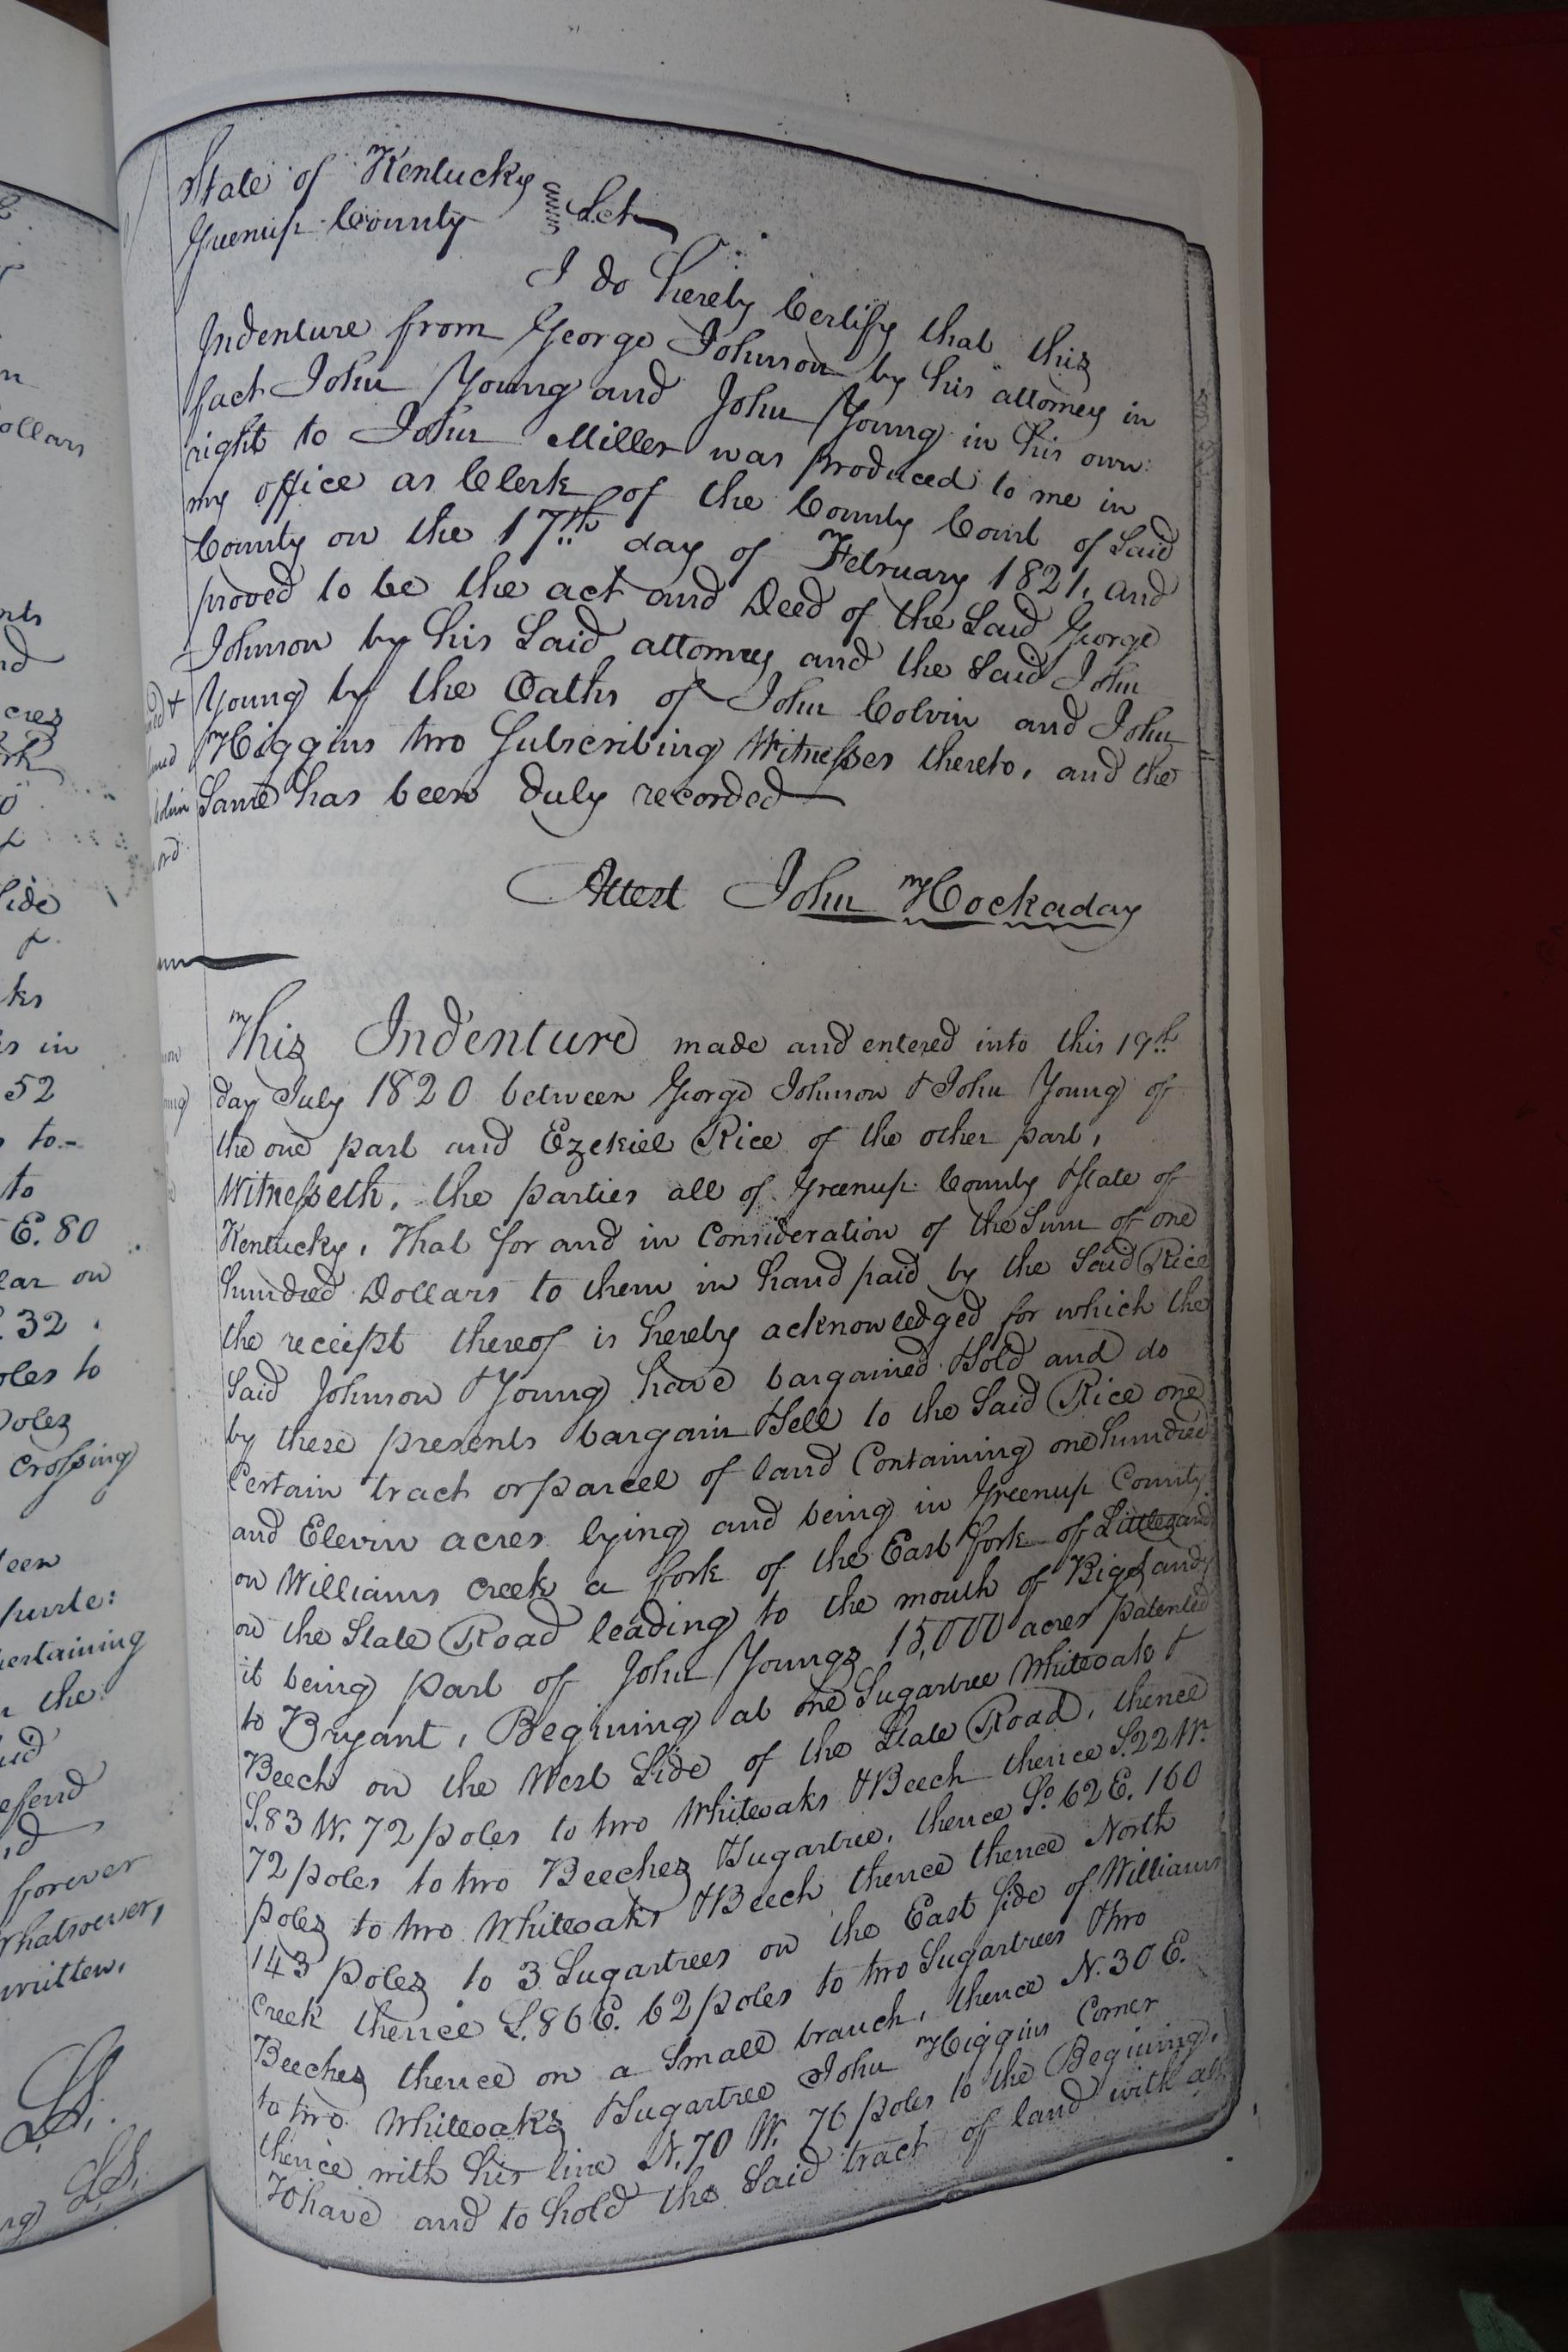 State of Kentucky
Greenup County Sct
I do hereby Certify that this
Indenture from George Johnson by his attorney in
fact John Young and John Young in his own
right to John Miller was produced to me in
my office as Clerk of the County Court of Said
County on the 17th day of February 1821, and
proved to be the act and Deed of the Said George
Johnson by his Said attorney and the Said John
Young by the Oaths of John Colvin and John
Higgins two Subscribing Witnesses thereto, and the
Same has been duly recorded
Attest John Hockaday
This Indenture made and entered into this 19th
day July 1820 between George Johnson & John Young of
the one part and Ezekiel Rice of the other part,
Witnesseth, the parties all of Greenup County & State of
Kentucky, That for and in Consideration of the Sum of one
hundred Dollars to them in hand paid by the Said Rice
the receipt thereof is hereby acknowledged for which the
Said Johnson & Young have bargained & Sold and do
by these presents bargain & Sell to the Said Rice one
Certain tract or parcel of land Containing one hundred
and Elevin acres lying and being in Greenup County
on Williams Creek a fork of the East fork of Little Sandy
on the State Road leading to the mouth of Big Sandy
it being part of John Youngs 15,000 acres patented
to Bryant, Begining at one Sugartree Whiteoak &
Beech on the West Side of the State Road, thence
S.83 W. 72 poles to two Whiteoaks & Beech thence S.22 W.
72 poles to two Beeches & Sugartree, thence So. 62 E. 160
poles to two Whiteoaks & Beech thence thence North
143 poles to 3 Sugartrees on the East Side of Williams
Creek thence S.86 E. 62 poles to two Sugartrees & two
Beeches thence on a Small branch, thence N.30 E.
to two Whiteoaks & Sugartree John Higgins Corner
thence with his line N.70 W. 76 poles to the Begining,
To have and to hold the Said tract of land with all